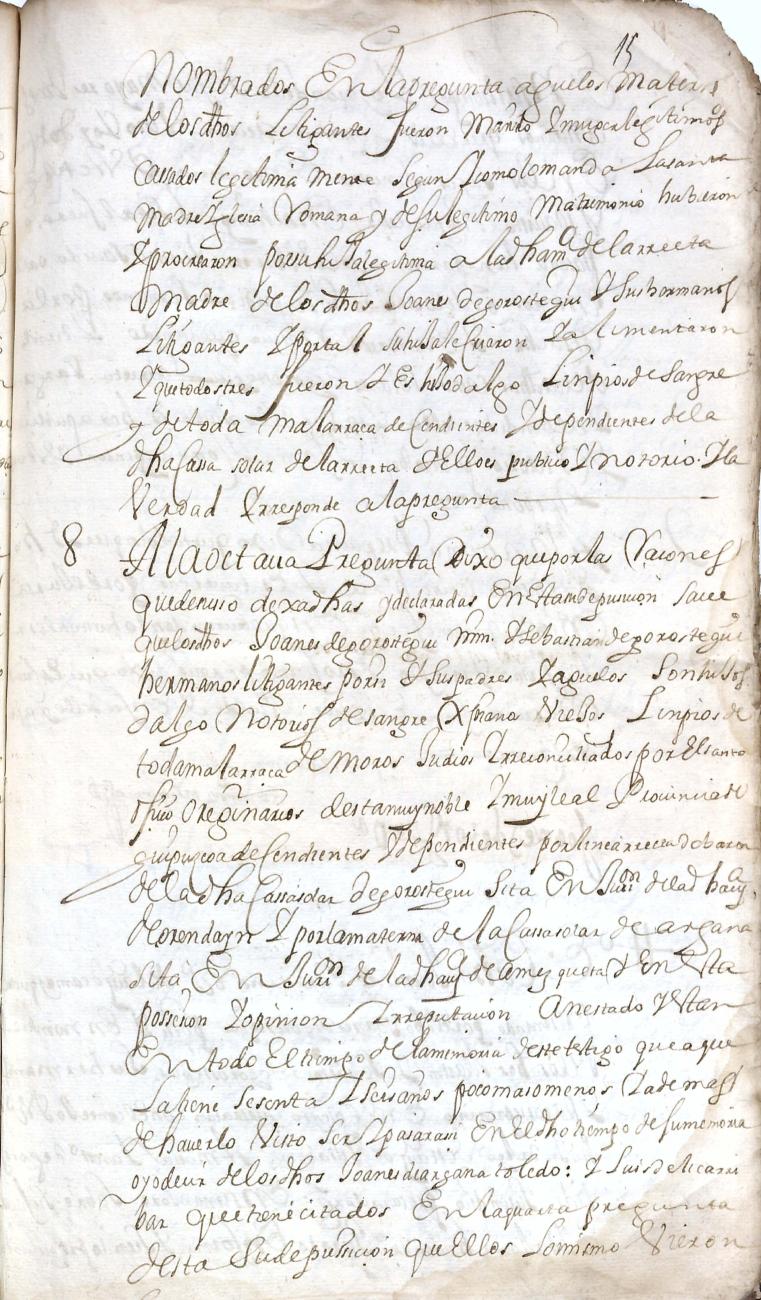 15
Nombrados En la pregunta aguelos Maternos
de los dhos Litigantes fueron Marido Y muger legitimos
Cassados legitima mente segun Y como lo manda La santa
Madre Iglesia Romana y de su legitimo Matrimonio hubieron
Y procrearon por su hija legitima a la dha mª de larreeta
Madre de los dhos Joanes de gorostegui Y sus hermanos
Litigantes Y por tal su hija le Crieron Y alimentaron
Y que todos tres fueron Y Es hijodalgo Linpios de Sangre
y de toda mala rraca decendientes Y dependientes de la
dha Cassa solar de larreeta Y Ello es publico Y notorio Y la
Verdad Y rresponde a la pregunta
8 A la octaua Pregunta Dixo que por las Raçones
que de nuso dexa dhas y declaradas En Esta su depusicion saue
que los dhos Joanes de gorostegui Mrn. Y sebastian de gorostegui
hermanos litigantes por si Y sus padres Y aguelos son hijos
dalgo Notorios de sangre Xpnanos Viejos Linpios de
toda mala rraca de Moros Judios Y rreconciliados por El santo
ofiçio Oreginarios desta muy noble Y muy leal Provincia de
guipuzcoa decendientes Y dependientes por linea rrecta de baron
de la dha Cassa solar de gorostegui Sita En Juron de la dha uª
de orendayn Y por la materna de la Cassa solar de argana
sita En Juron de la dha uª de amezqueta Y En Esta
possesion Y opinion Y rreputacion An estado Y Estan
En todo El tienpo de la mimoria deste testigo que a que
la tiene sesenta Y seis años poco mas o menos Y ademas
de hauerlo Visto ser Y pasar asi En El dho tienpo de su memoria
oyo deçir de los dhos Joanes de argana toledo: Y Luis de licarri
bar que tiene citados En la quarta pregunta
desta su depusicion que Ellos lo mismo Vieron